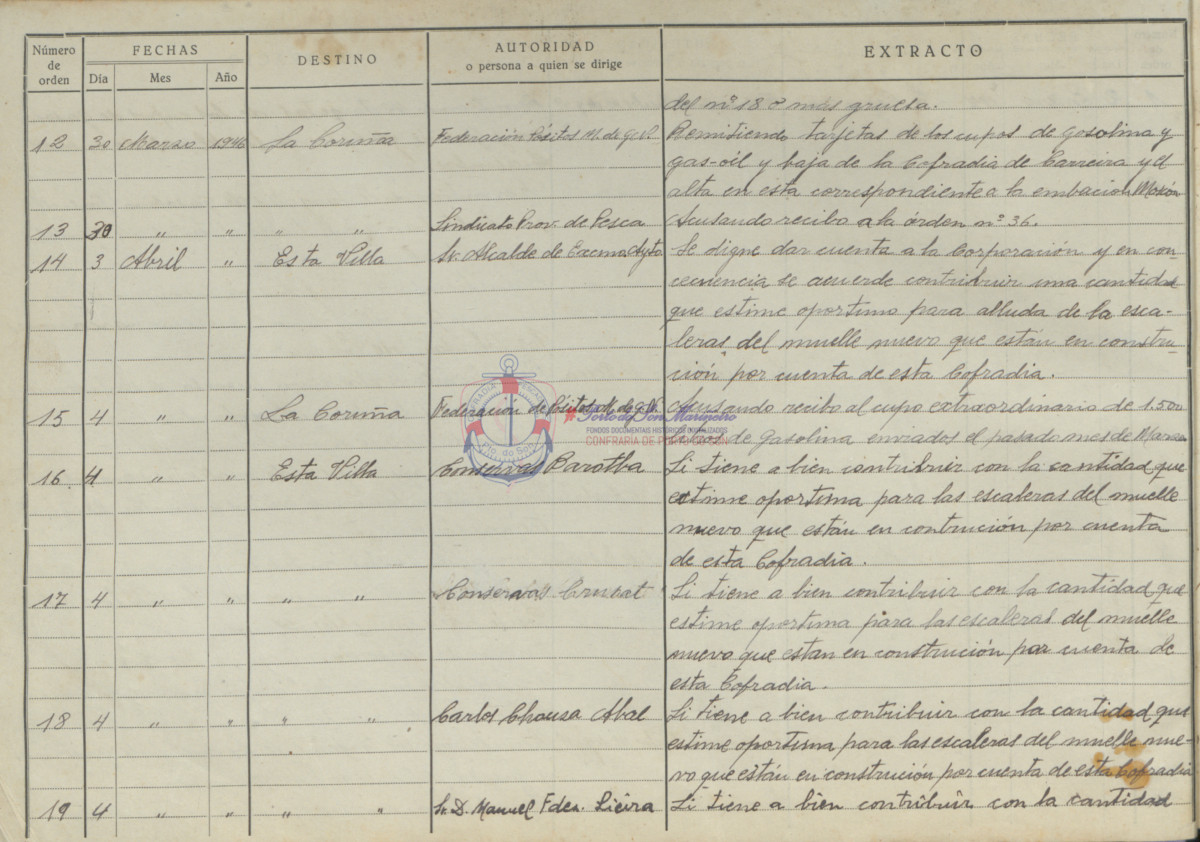 Número de orden FECHAS DESTINO AUTORIDAD o persona a quien se dirige EXTRACTO
Día Mes Año
del nº 18 o más gruesa.
12 30 Marzo 1946 La Coruña Federación Pósitos M. de Remitiendo tarjetas de los cupos de gasolina y
gas-oil y baja de la Cofradia de Carreira y el
alta en esta correspondiente a la embacion
13 30 " " " " Sindicato Prov. de Pesca Acusando recibo a la órden nº 36.
14 3 Abril " Esta Villa Sr. Alcalde de Excmo Ayto. Se digne dar cuenta a la Corporación y en con-
secuencia se acuerde contribuir una cantidad
que estime oportuno para alluda de la esca-
leras del muelle nuevo que están en constru-
ción por cuenta de esta Cofradia.
15 4 " " La Coruña Federación de Pósitos M. de Acusando recibo al cupo extraordinario de 1.500
de Gasolina enviados el pasado mes de Marzo
16 4 " " Esta Villa Conservas Si tiene a bien contribuir con la cantidad que
estime oportuna para las escaleras del muelle
nuevo que están en contrución por cuenta
de esta Cofradia.
17 4 " " " " Conservas Cruzat Si tiene a bien contribuir con la cantidad que
estime oportuna para las escaleras del muelle
nuevo que estan en construición por cuenta de
esta Cofradia.
18 4 " " " " Carlos Chausa Abal Si tiene a bien contribuir con la cantidad que
estime oportuna para las escaleras del muelle nue-
vo que están en construción por cuenta de esta Cofradia
19 4 " " " " Sr. D. Manuel Fdez. Lieira Si tiene a bien contribuir con la cantidad
#Porto do Son Mariñeiro
FONDOS DOCUMENTAIS HISTÓRICOS DIXITALIZADOS
CONFRARÍA DE PORTO DO SON